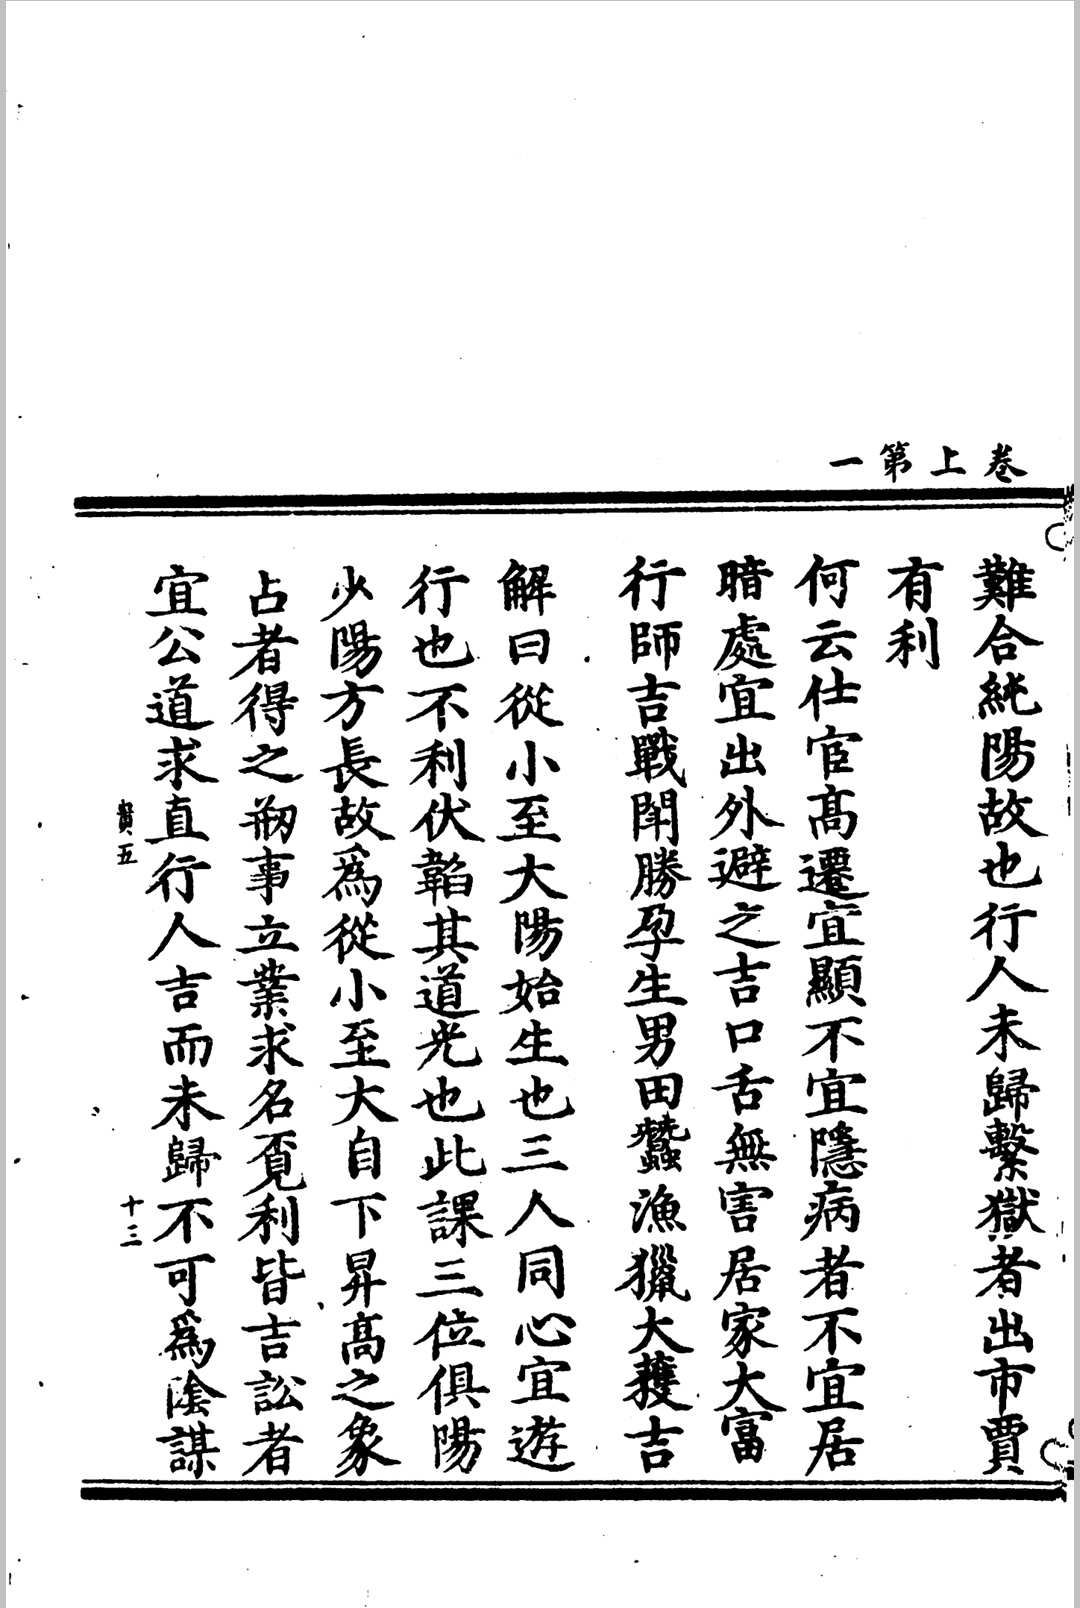 卷上第一
難合純陽故也行人未歸繫獄者出市賈
有利
何云仕宦髙遷宜顯不宜隱病者不宜居
暗處宜出外避之吉口舌無害居家大富
行師吉戰鬥勝孕生男田蠶漁獵大獲吉
解曰從小至大陽始生也三人同心宜遊
行也不利伏韜其道光也此課三位俱陽
少陽方長故爲從小至大自下昇髙之象
占者得之刱事立業求名覓利皆吉訟者
宜公道求直行人吉而未歸不可爲陰謀
賛五
十三